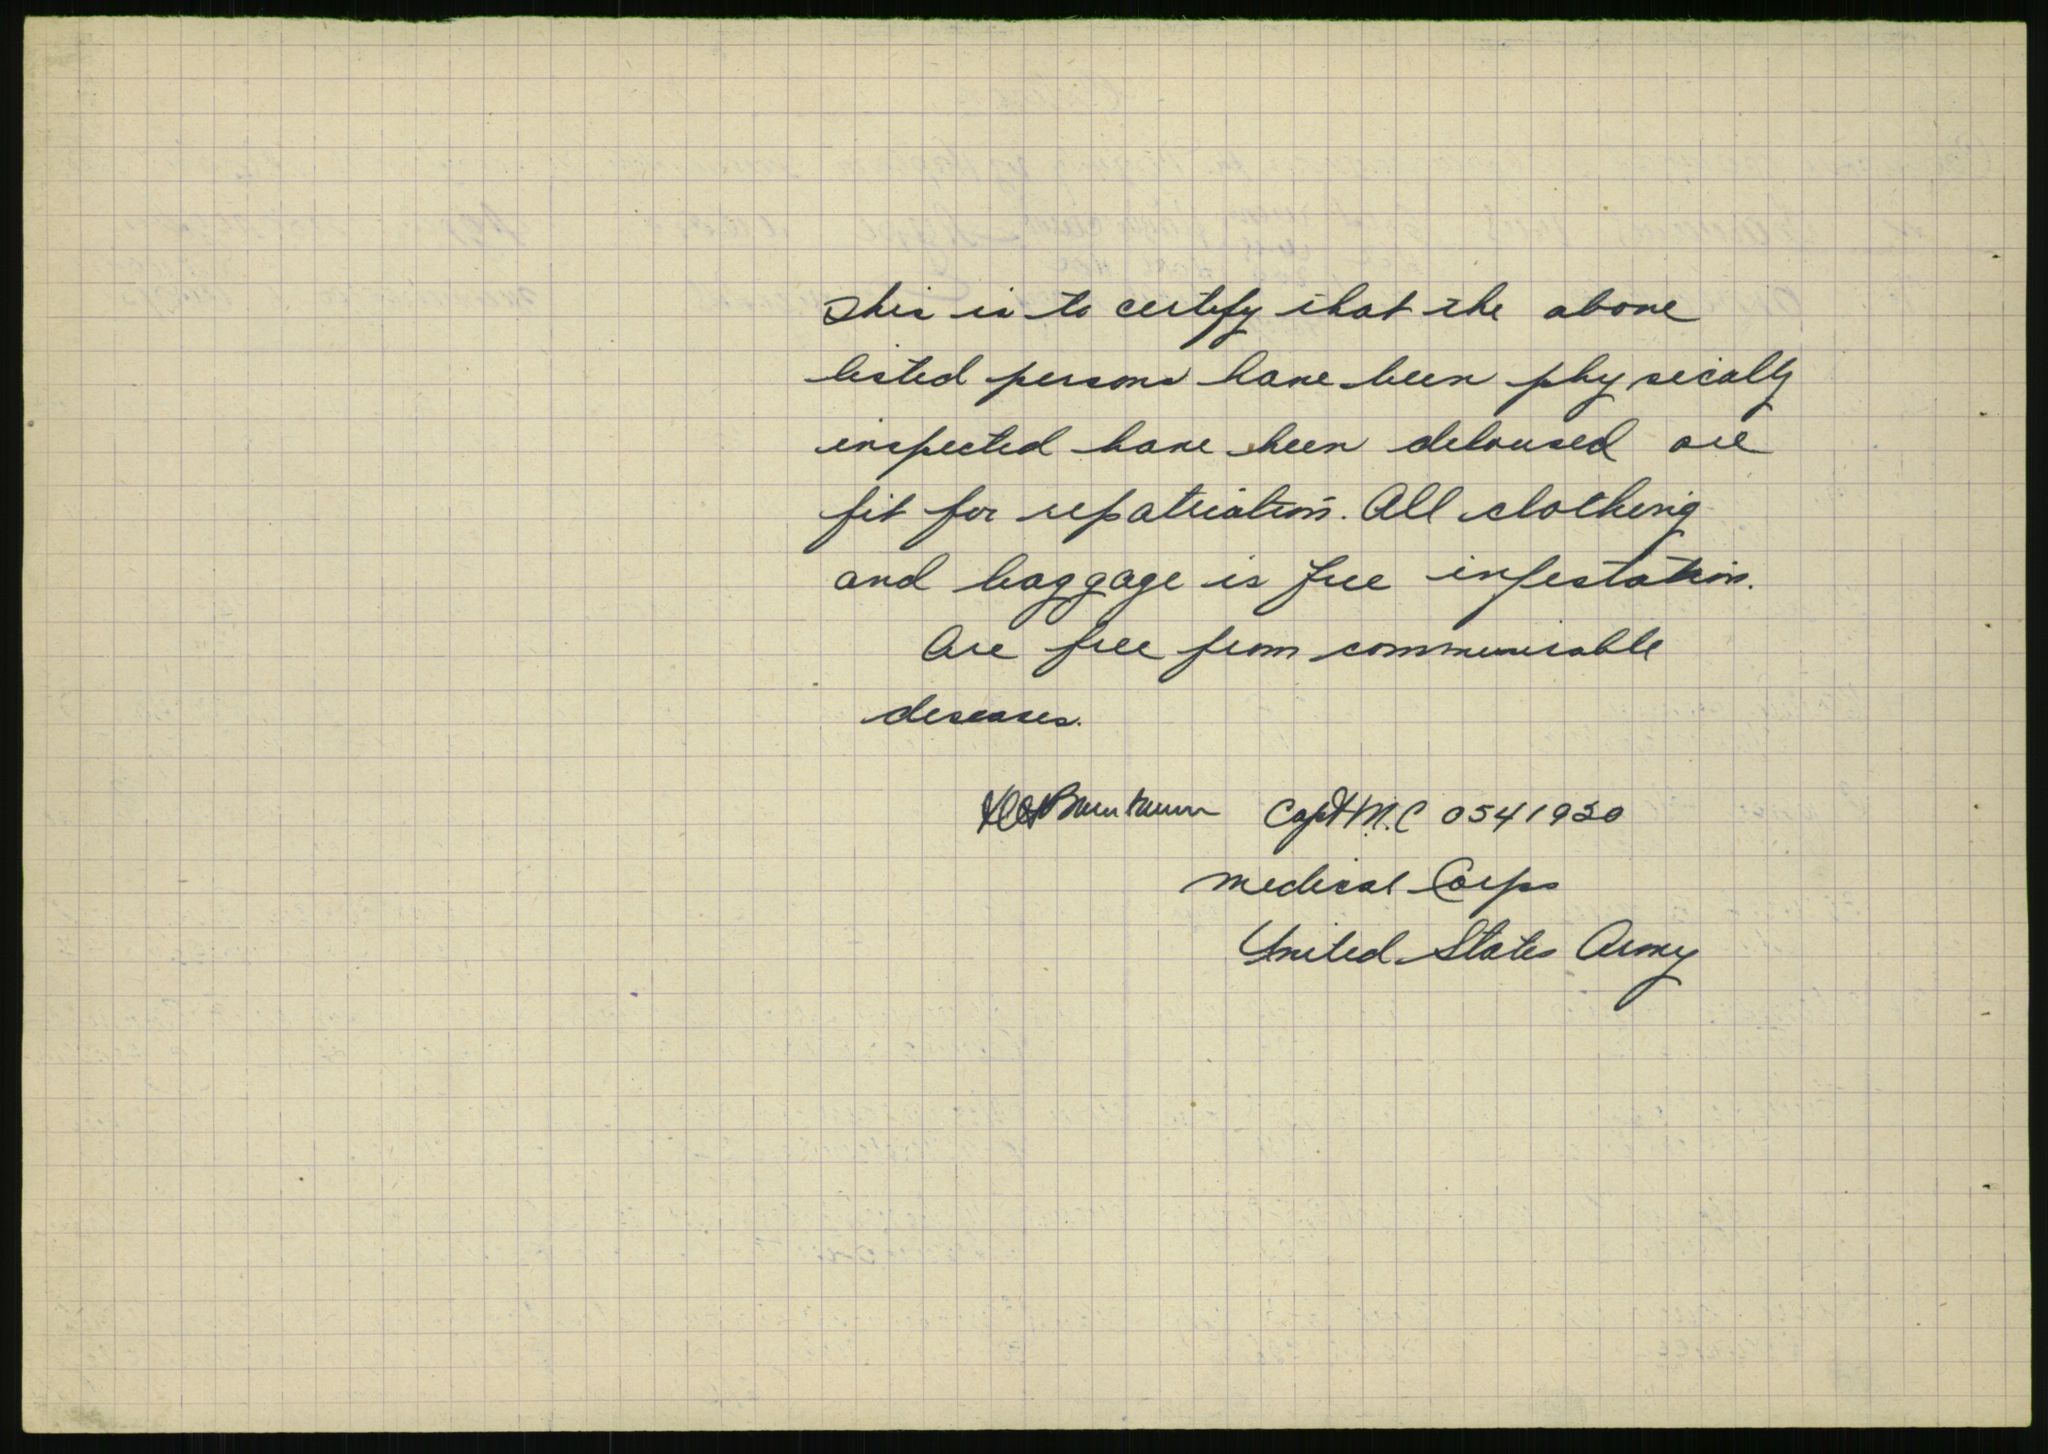 This is to certify that the above
listed persons have been physically
inspected have been deloused are
fit for repatriation. All clothing
and baggage is free infestation.
Are free from communicable
deseases.
Capt M.C 0541920
Medical Corps
United States Army